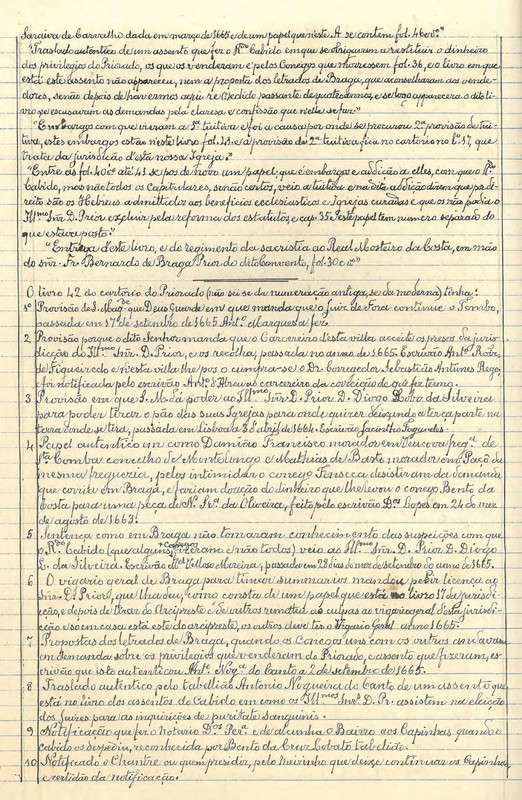 Saraiva de Carvalho dada em março de 1665 e de um papel que neste A se contem fol. 46 e vº."
"Traslado autentico de um assento que fez o Rdo Cabido em que se obrigavam a restituir o dinheiro
dos privilegios do Priorado, os que os venderam e pelos Conegos que morressem fol. 36, e o livro em que
está este assento não appareceu, nem a proposta dos letrados de Braga, que aconselharam aos vende-
dores, senão depois de havermos aqui remedido passante de quatro annos, e se logo apparecera o dito li-
vro se escusavam as demandas pela clareza e confissão que n'elle se fez."
"Embargos com que vieram a 1ª tuitiva e foi a causa por onde se procurou 2ª provisão de tui-
tiva, estes embargos estão neste livro fol. 41 e a provisão de 2ª tuitiva fica no cartorio no Lº 17, que
trata da jurisdição d'esta nossa Igreja."
"Entre as fol. 40 e até 41 se pos de novo um papel; que é embargos e addição a elles, com que o Rdo
Cabido, mas não todos os Capitulares, senão certos, veio a tuitiva e na dita addição dizem que por di-
reito são os Hebreus admittidos aos beneficios ecclesiasticos e Igrejas curadas e que os não podia o
Illmo Snr. D. Prior excluir pela reforma dos estatutos, e cap. 35 e este papel tem numero separado do
que estava posto."
"Entrega d'este livro, e do regimento da sacristia ao Real Mosteiro da Costa, em mão
do snr. Fr. Bernardo de Braga Prior do dito Convento, fol. 30 e vº"
O livro 42 do cartorio do Priorado (não sei se da numeração antiga, se da moderna) tinha:
1º Provisão de S. Magde que Deus Guarde em que manda que o Juiz de Fora continue o Tombo,
passada em 17 de setembro de 1665 Antº Marques a fez.
2 Provisão porque o dito Senhor manda que o Carcereiro desta villa acceite os presos da juris-
dicção do Illmo Snr. D. Prior, e os recolha, passada no anno de 1665 Escrivão Antº Rodz
de Figueiredo e n'esta villa lhe pos o cumpra-se o Dr. Corregedor Sebastião Antunes Rego
e foi notificada pelo escrivão Antº d'Abreu ao carcereiro da correição de que fez termo.
3 Provisão em que S. M. dá poder ao Illmo Snr. D. Prior D. Diogo Lobo da Silveira
para poder tirar o pão das suas Igrejas para onde quizer deixando a terça parte na
terra onde se tira, passada em Lisboa a 3 d'abril de 1664. Escrivão Jacintho Fagundes.
4 Papel autentico em como Damião Francisco morador em freg.ª de
Sta Comba concelho de Montelongo e Mathias de Basto, morador em Paçô da
mesma freguezia, pelos intimidar o conego Fonseca desistiram da demanda
que corria em Braga, e fariam doação do dinheiro que lhe levou o conego Bento da
Costa para uma peça de N. Srª da Oliveira, feito pelo escrivão Dos Lopes em 24 de maio
de agosto de 1663.
5 Sentença como em Braga não tomaram conhecimento das suspeições com que
o Rdo Cabido (que alguns Conegos fizeram e não todos) veio ao Illmo Snr. D. Prior D. Diogo
L. da Silveira. Escrivão Mel Velloso Moreira, passada em 28 dias do mez de setembro do anno de 1665.
6 O vigario geral de Braga para tirar summarios mandou pedir licença ao
Snr. D. Prior, que lha deu, como consta de um papel que está no livro 17 da jurisdi-
cção, e depois de tirar do Arcipreste e de outros remetteu as culpas ao vigario geral d'esta jurisdi-
cção e so em casa está este do arcipreste, os outros deve ter o Vigario Geral anno 1665.
7 Propostas dos letrados de Braga, quando os Conegos uns com os outros andavam
em demanda sobre os privilegios que venderam do Priorado, e assento que fizeram, es-
crivão que isto autenticou Antº Nogrª do Canto a 2 de setembro de 1665.
8 Traslado autentico pelo tabellião Antonio Nogueira do Canto de um assento que
está no livro dos assentos do Cabido em como os Illmos Snrs. D. Pr. assistem na eleição
dos Juizes para as inquirições de puritate sanguinis.
9 Notificação que fez o Notario Dos Ferª e de alcunha o Bairro aos Capinhas quando o
cabido os despediu, reconhecida por Bento da Cruz Lobato tabelião.
10 Notificado o Chantre ou quem presidir, pelo Meirinho que deixe continuar os Capinhas,
e certidão da notificação.